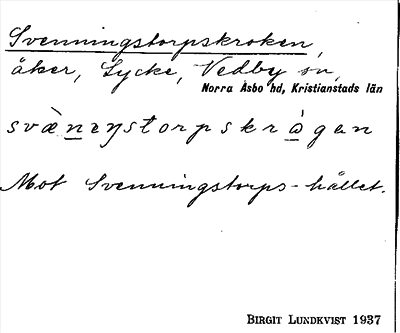 Svenningstorpskroken,
åker, Lycke, Vedby sn,
Norra Åsbo hd, Kristianstads län
svæ̀nеŋstorpskrågan
Mot Svenningstorps-hållet.
BIRGIT LUNDKVIST 1937